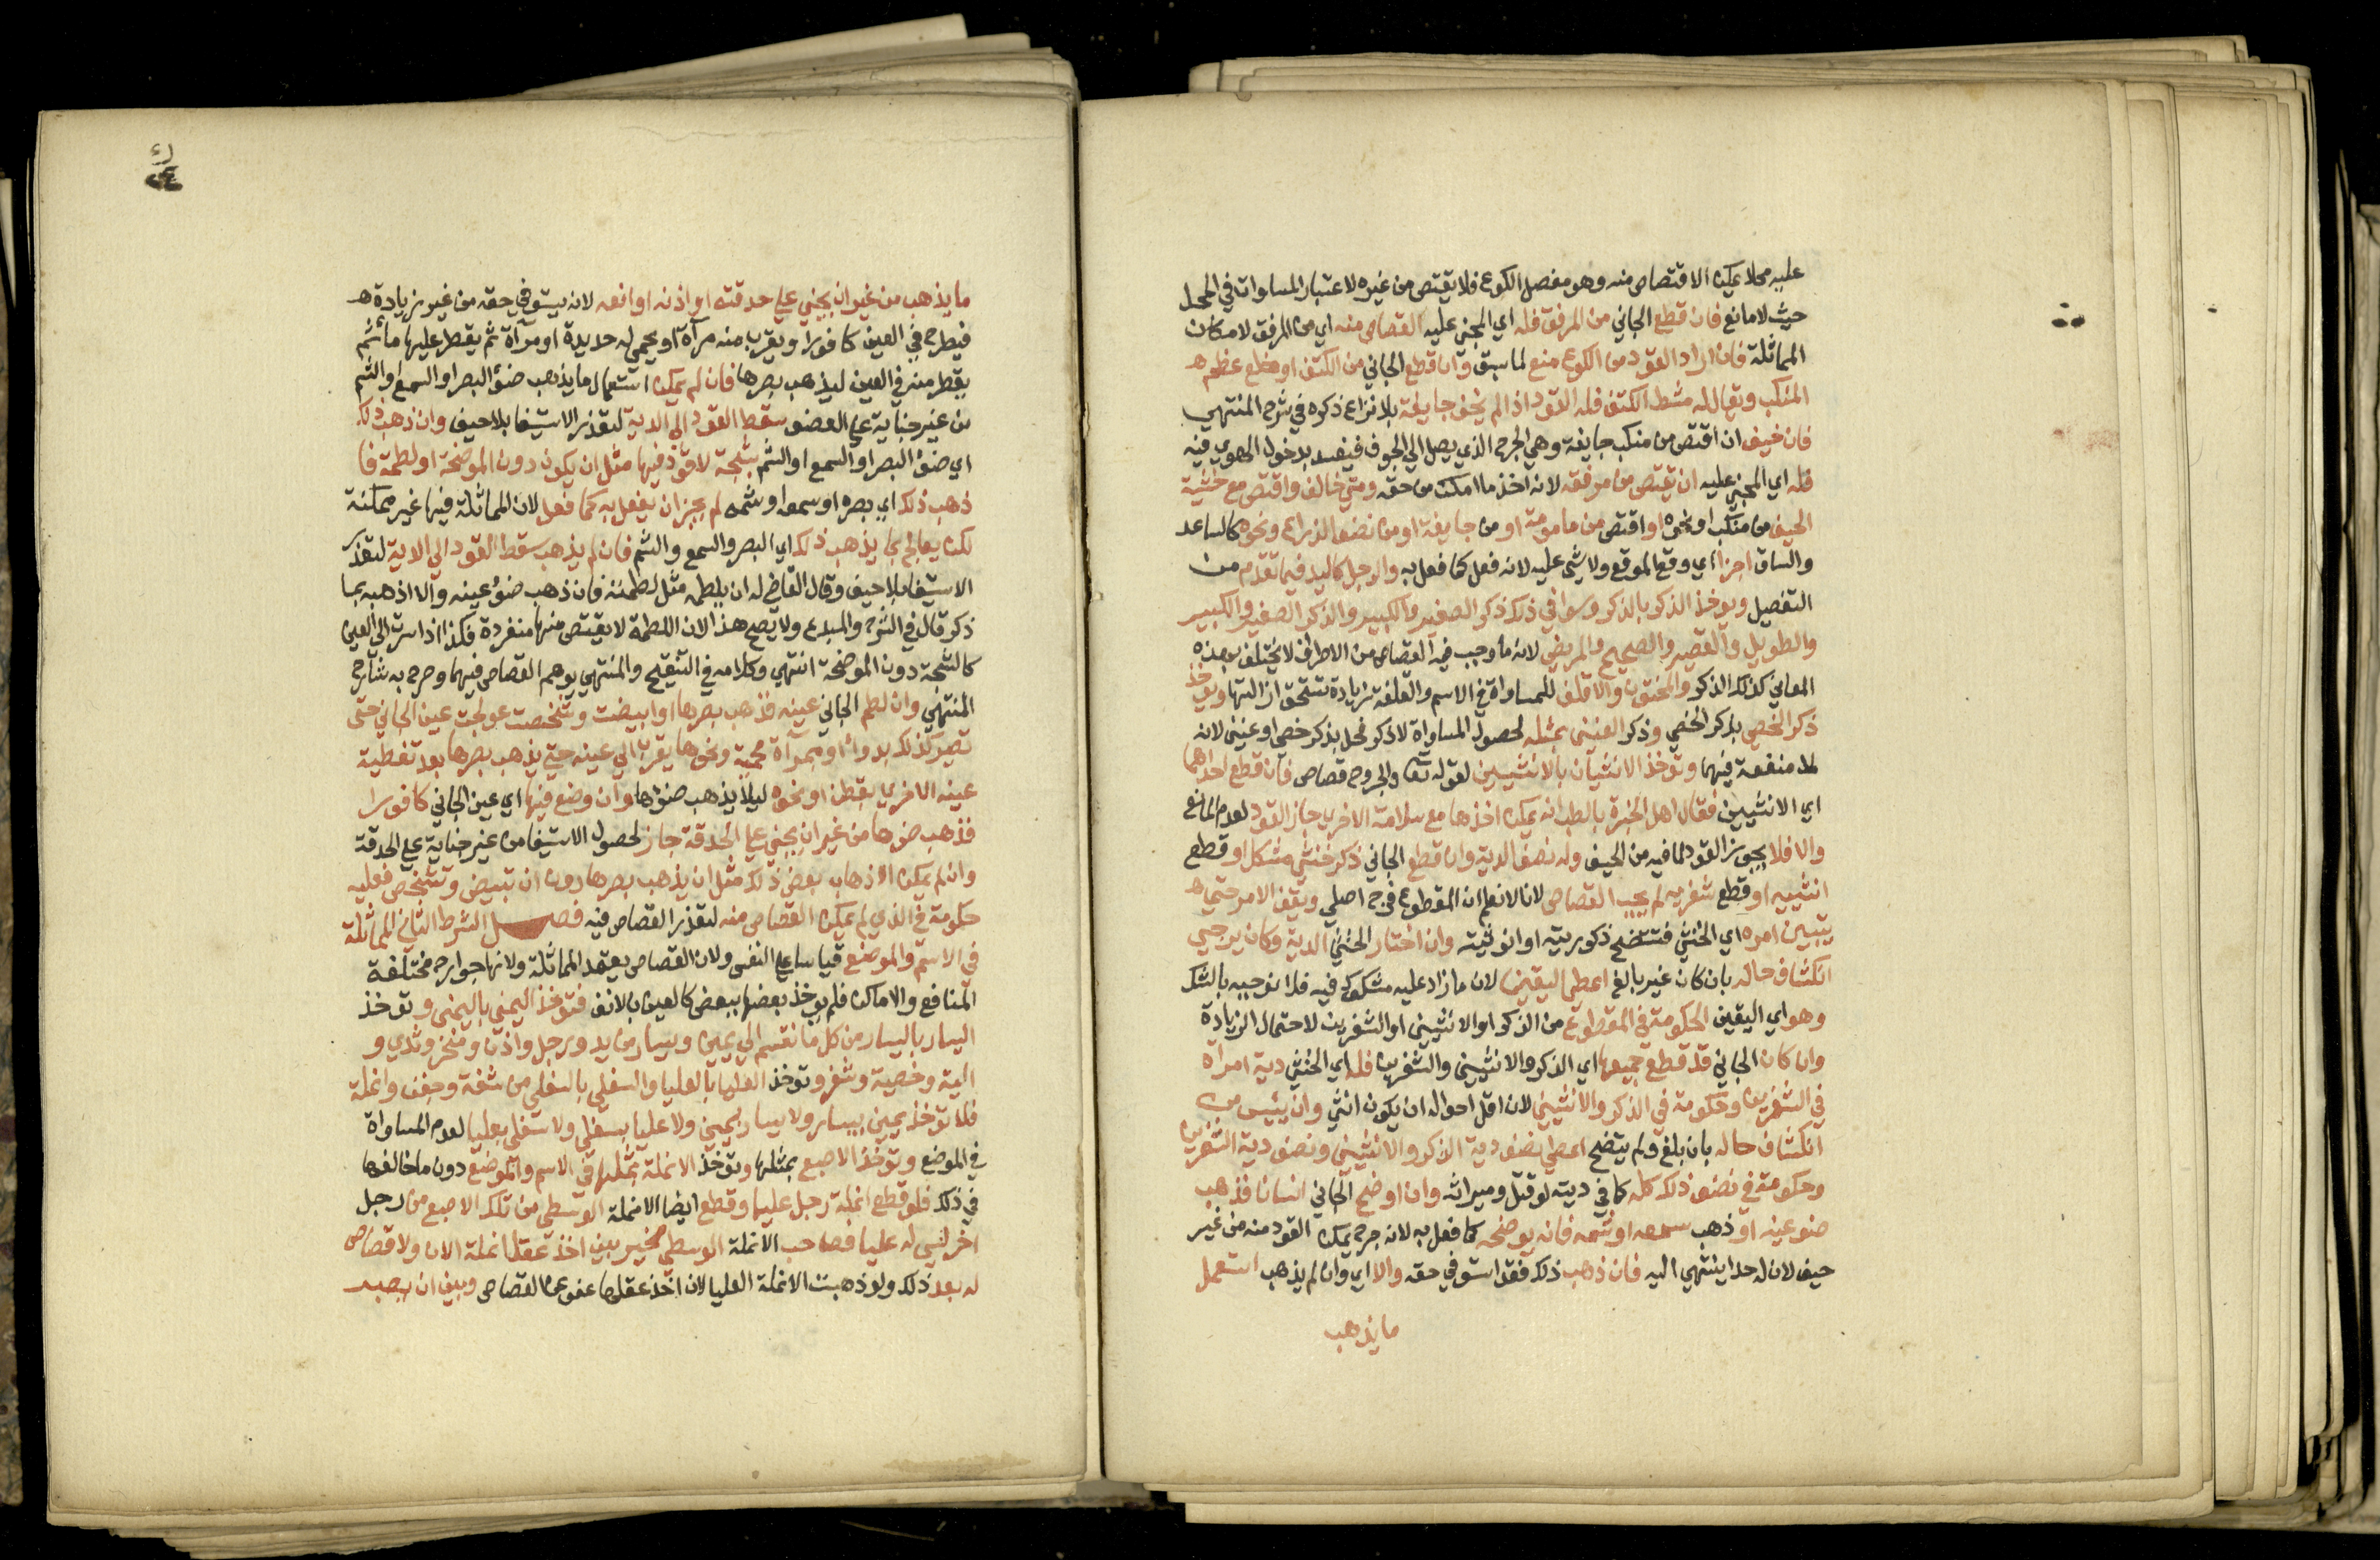 عليه محلا يمكن الاقتصاص منه وهو مفصل الكوع فلا يقتص من غيره لاعتبار المساوات في المحل
حيث لا مانع فان قطع الجاني من المرفق فله اي المجني عليه القصاص منه اي من المرفق لامكان
المماثلة فان اراد القود من الكوع منع لما سبق وان قطع الجاني من الكتف او خلع عظم
المنكب ويقال له مشط الكتف فله القود اذا لم يخف جايفة بلا نزاع ذكره في شرح المنتهي
فان خيف ان اقتص من منكب جايفة وهي الجرح الذي يصل الي الجوف فيفسد بدخول الهوي فيه
فله اي المجني عليه ان يقتص من مرفقه لانه اخذ ما امكن من حقه ومتي خالف واقتص مع خشية
الحيف من منكب او نحوه او اقتص من مامومة او من جايفة او من نصف الذراع ونحوه كالساعد
والساق اجزا اي وقع الموقع ولا شي عليه لانه فعل كما فعل به والرجل كاليد فيما تقدم من
التفصيل ويوخذ الذكر بالذكر وسوا في ذلك ذكر الصغير والكبير والذكر الصغير والكبير
والطويل والقصير والصحيح والمريض لانه ما وجب فيه القصاص من الاطراف لا يختلف بهذه
المعاني كذلك الذكر والمختون والاقلف للمساواة في الاسم والقلفة زيادة تستحق ازالتها ويوخذ
ذكر الخصي بذكر الخصي وذكر العنين بمثله لحصول المساواة لا ذكر فحل بذكر خصي او عنين لانه
لا منفعة فيهما وتوخذ الانثيان بالانثيين لقوله تعا والجروح قصاص فان قطع احداهما
اي الانثيين فقال اهل الخبرة بالطب انه يمكن اخذها مع سلامة الاخري جاز القود لعدم المانع
والا فلا يجوز القود لما فيه من الحيف وله نصف الدية وان قطع الجاني ذكر خنثي مشكل او قطع
انثييه او قطع شفريه لم يجب القصاص لانا لا نعلم ان المقطوع فرج اصلي ويقف الامر حتي
يتبين امره اي الخنثي فتتضح ذكوريته او انوثيته وان اختار الخنثي الدية وكان يرجي
انكشاف حاله بان كان غير بالغ اعطي اليقين لان ما زاد عليه مشكوك فيه فلا نوجبه بالشك
وهو اي اليقين الحكومة في المقطوع من الذكر او الانثيين او الشفرين لاحتمال الزيادة
وان كان الجاني قد قطع جميعها اي الذكر والانثيين والشفرين فله اي الخنثي دية امراة
في الشفرين وحكومة في الذكر والانثيين لان اقل احواله ان يكون انثي وان يئيس من
انكشاف حاله بان بلغ ولم يتضح اعطي نصف دية الذكر والانثيين ونصف دية الشفرين
وحكومة في نصف ذلك كله كما في ديته لو قتل وميراثه وان اوضح الجاني انسانا فذهب
ضو عينه او ذهب سمعه او شمه فانه يوضحه كما فعل به لانه جرح يمكن القود منه من غير
حيف لان له حدا ينتهي اليه فان ذهب ذلك فقد استوفي حقه والا اي وان لم يذهب استعمل
ما يذهب
ما يذهب من غير ان يجني علي حدقته او اذنه او انفه لانه يستوفي حقه من غير زيادة
فيطرح في العين كافورا ويقرب منه مرآة او يحمي له حديدة او مرآة ثم يقطر عليها ما ثم
يقطر منه في العين ليذهب بصرها فان لم يمكن استعمال ما يذهب ضؤ البصر او السمع او الشم
من غير جناية علي العضو سقط القود الي الدية لتعذر الاستيفا بلا حيف وان ذهب ذلك
اي ضؤ البصر او السمع او الشم بشجة لا قود فيها مثل ان يكون دون الموضحة او لطمة فا
ذهب ذلك اي بصره او سمعه او شمه لم يجز ان يفعل به كما فعل لان المماثلة فيها غير ممكنة
لكن يعالج بما يذهب ذلك اي البصر والسمع والشم فان لم يذهب سقط القود الي الاية لتعذر
الاستيفا بلا حيف وقال القاضي له ان يلطمه مثل لطمته فان ذهب ضؤ عينه والا اذهبه بما
ذكر قال في الشرح والمبدع ولا يصح هذا لان اللطمة لا يقتص منها منفردة فكذا اذا سرت الي العين
كالشجة دون الموضحة انتهي وكلامه في التنقيح والمنتهي يوهم القصاص فيهما وصرح به شارح
المنتهي وان لطم الجاني عينه فذهب بصرها او ابيضت وشخصت عولجت عين الجاني حتي
تصير كذلك بدواء او بمرآة محمية ونحوها يقرب الي عينه حتي يذهب بصرها بعد تغطية
عينه الاخري بقطن او نحوه ليلا يذهب ضؤها وان وضع فيها اي عين الجاني كافورا
فذهب ضوها من غير ان يجني علي الحدقة جاز لحصول الاستيفا من غير جناية علي الحدقة
وان لم يمكن الا ذهاب بعض ذلك مثل ان يذهب بصرها دون ان تبيض وتشخص فعليه
حكومة في الذي لم يمكن القصاص منه لتعذر القصاص فيه فصل الشرط الثاني المماثلة
في الاسم والموضع قياسا علي النفس ولان القصاص يعتمد المماثلة ولانها جوارح مختلفة
المنافع والاماكن فلم يوخذ بعضها ببعض كالعين بالانف فتوخذ اليمني باليمني وتوخذ
اليسار باليسار من كل ما انقسم الي يمين ويسار من يد ورجل واذن ومنخر وثدي و
الية وخصية وشفر وتوخذ العليا بالعليا والسفلي بالسفلي من شفة وجفن وانملة
فلا توخذ يمين بيسار ولا يسار بيمين ولا عليا بسفلي ولا سفلي بعليا لعدم المساواة
في الموضع وتوخذ الاصبع بمثلها وتوخذ الانملة بمثلها في الاسم والموضع دون ما خالفها
في ذلك فلو قطع انملة رجل عليا وقطع ايضا الانملة الوسطي من تلك الاصبع من رجل
اخر ليس له عليا فصاحب الانملة الوسطي مخير بين اخذ عقل انملة الان ولا قصاص
له بعد ذلك ولو ذهبت الانملة العليا لان اخذ عقلها عفو عن القصاص وبين ان يصبر